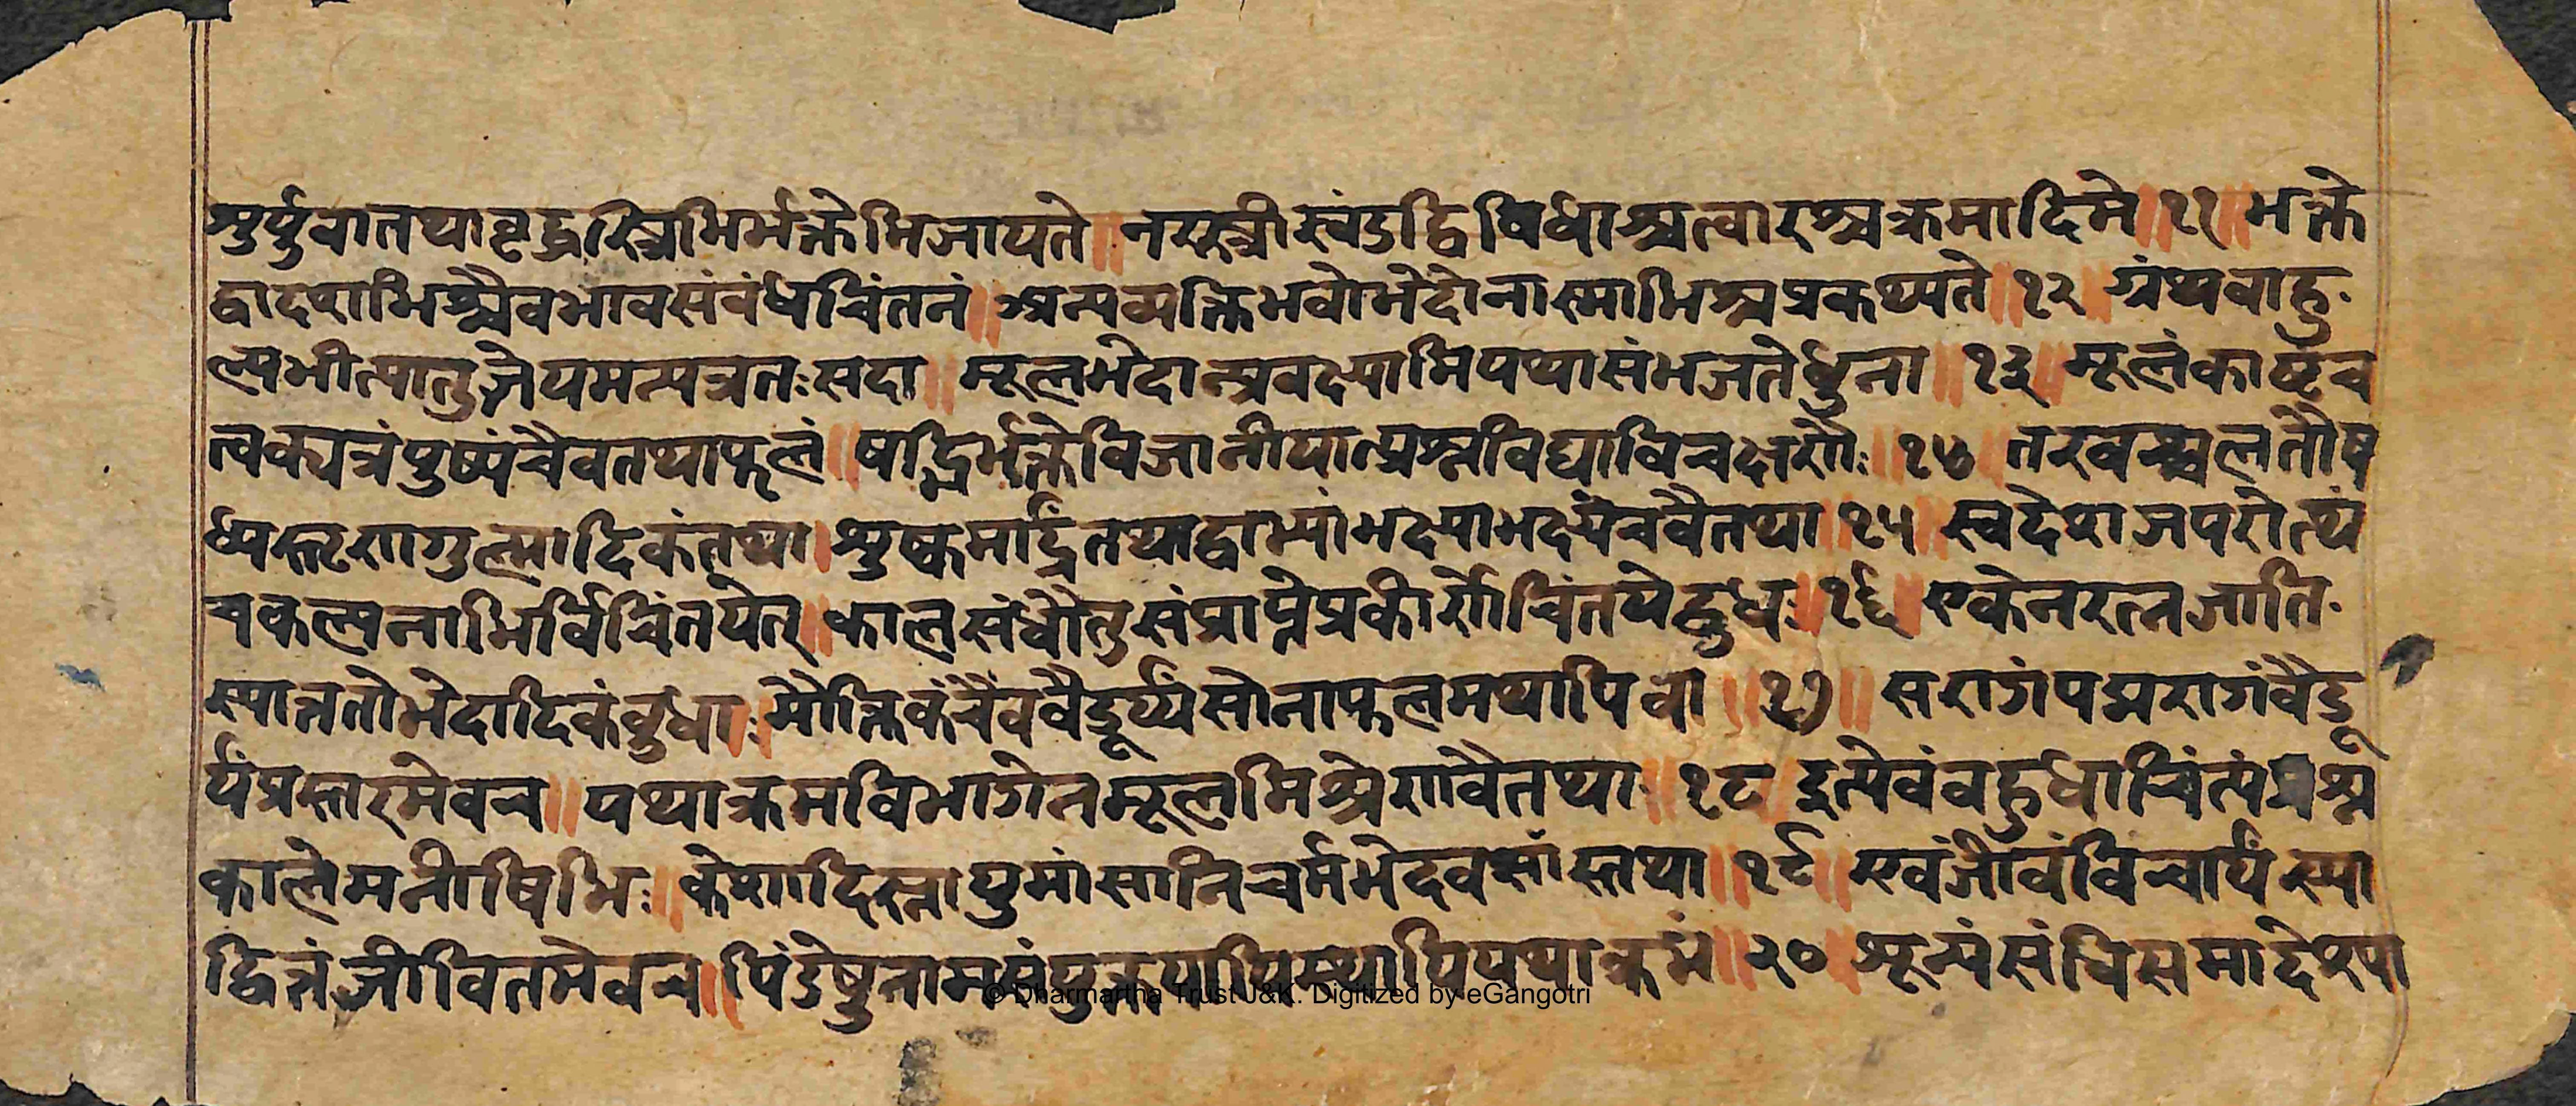 शुर्युवातथावृद्धस्त्रिभिर्भक्तेभिजायते॥ नरस्त्रीखंडद्विविधाश्चत्वारश्चक्रमादिमे॥११॥ भक्ते
द्वादशभिश्चैवभावसंबंधचिंतनं॥ अन्यव्यक्तिभवोभेदोनास्माभिश्चप्रकथ्यते॥१२॥ ग्रंथबाहु
ल्यभीत्यातुज्ञेयमत्यत्रतःसदा॥ मूलभेदान्प्रवक्ष्यामियथासंभजतेधुना॥१३॥ मूलंकाष्टंच
त्वक्पत्रंपुष्पंचैवतथाफलं॥ षड्भिर्भक्तेविजानीयात्प्रश्नविद्याविचक्षणैः॥१४॥ तरवश्चलतौष
ध्यस्तृणगुल्मादिकंतथा। शुष्कमार्द्रंतथाद्वाभ्यांभक्ष्याभक्ष्यंचवैतथा॥१५॥ स्वदेशजपरोत्थं
चकल्पनाभिर्विचिंतयेत्॥ कालसंधौतुसंप्राप्तेप्रकीर्णोचिंतयेद्बुधः॥१६॥ एकेनरत्नजाति
स्यान्नतोभेदादिकंबुधाः॥ मौक्तिकंचैववैदूर्य्यंसोनाफलमथापिवा॥१७॥ सरागंपद्मरागंवैदू
र्यंप्रस्तरमेवच॥ यथाक्रमविभागेनमूलमिश्रेणवैतथा॥१८॥ इत्येवंबहुधाचिंत्यंप्रश्न
कालेमनीषिभिः॥ केशादिस्नायुमांसानिचर्ममेदवसांस्तथा॥१९॥ एवंजीवंविचार्यंस्या
द्वित्तंजीवितमेवच॥ पिंडेषुनामसंयुक्तयापिस्थापियथाक्रमं॥२०॥ शून्यंसंधिसमादेश्या
© Dharmartha Trust J&K. Digitized by eGangotri